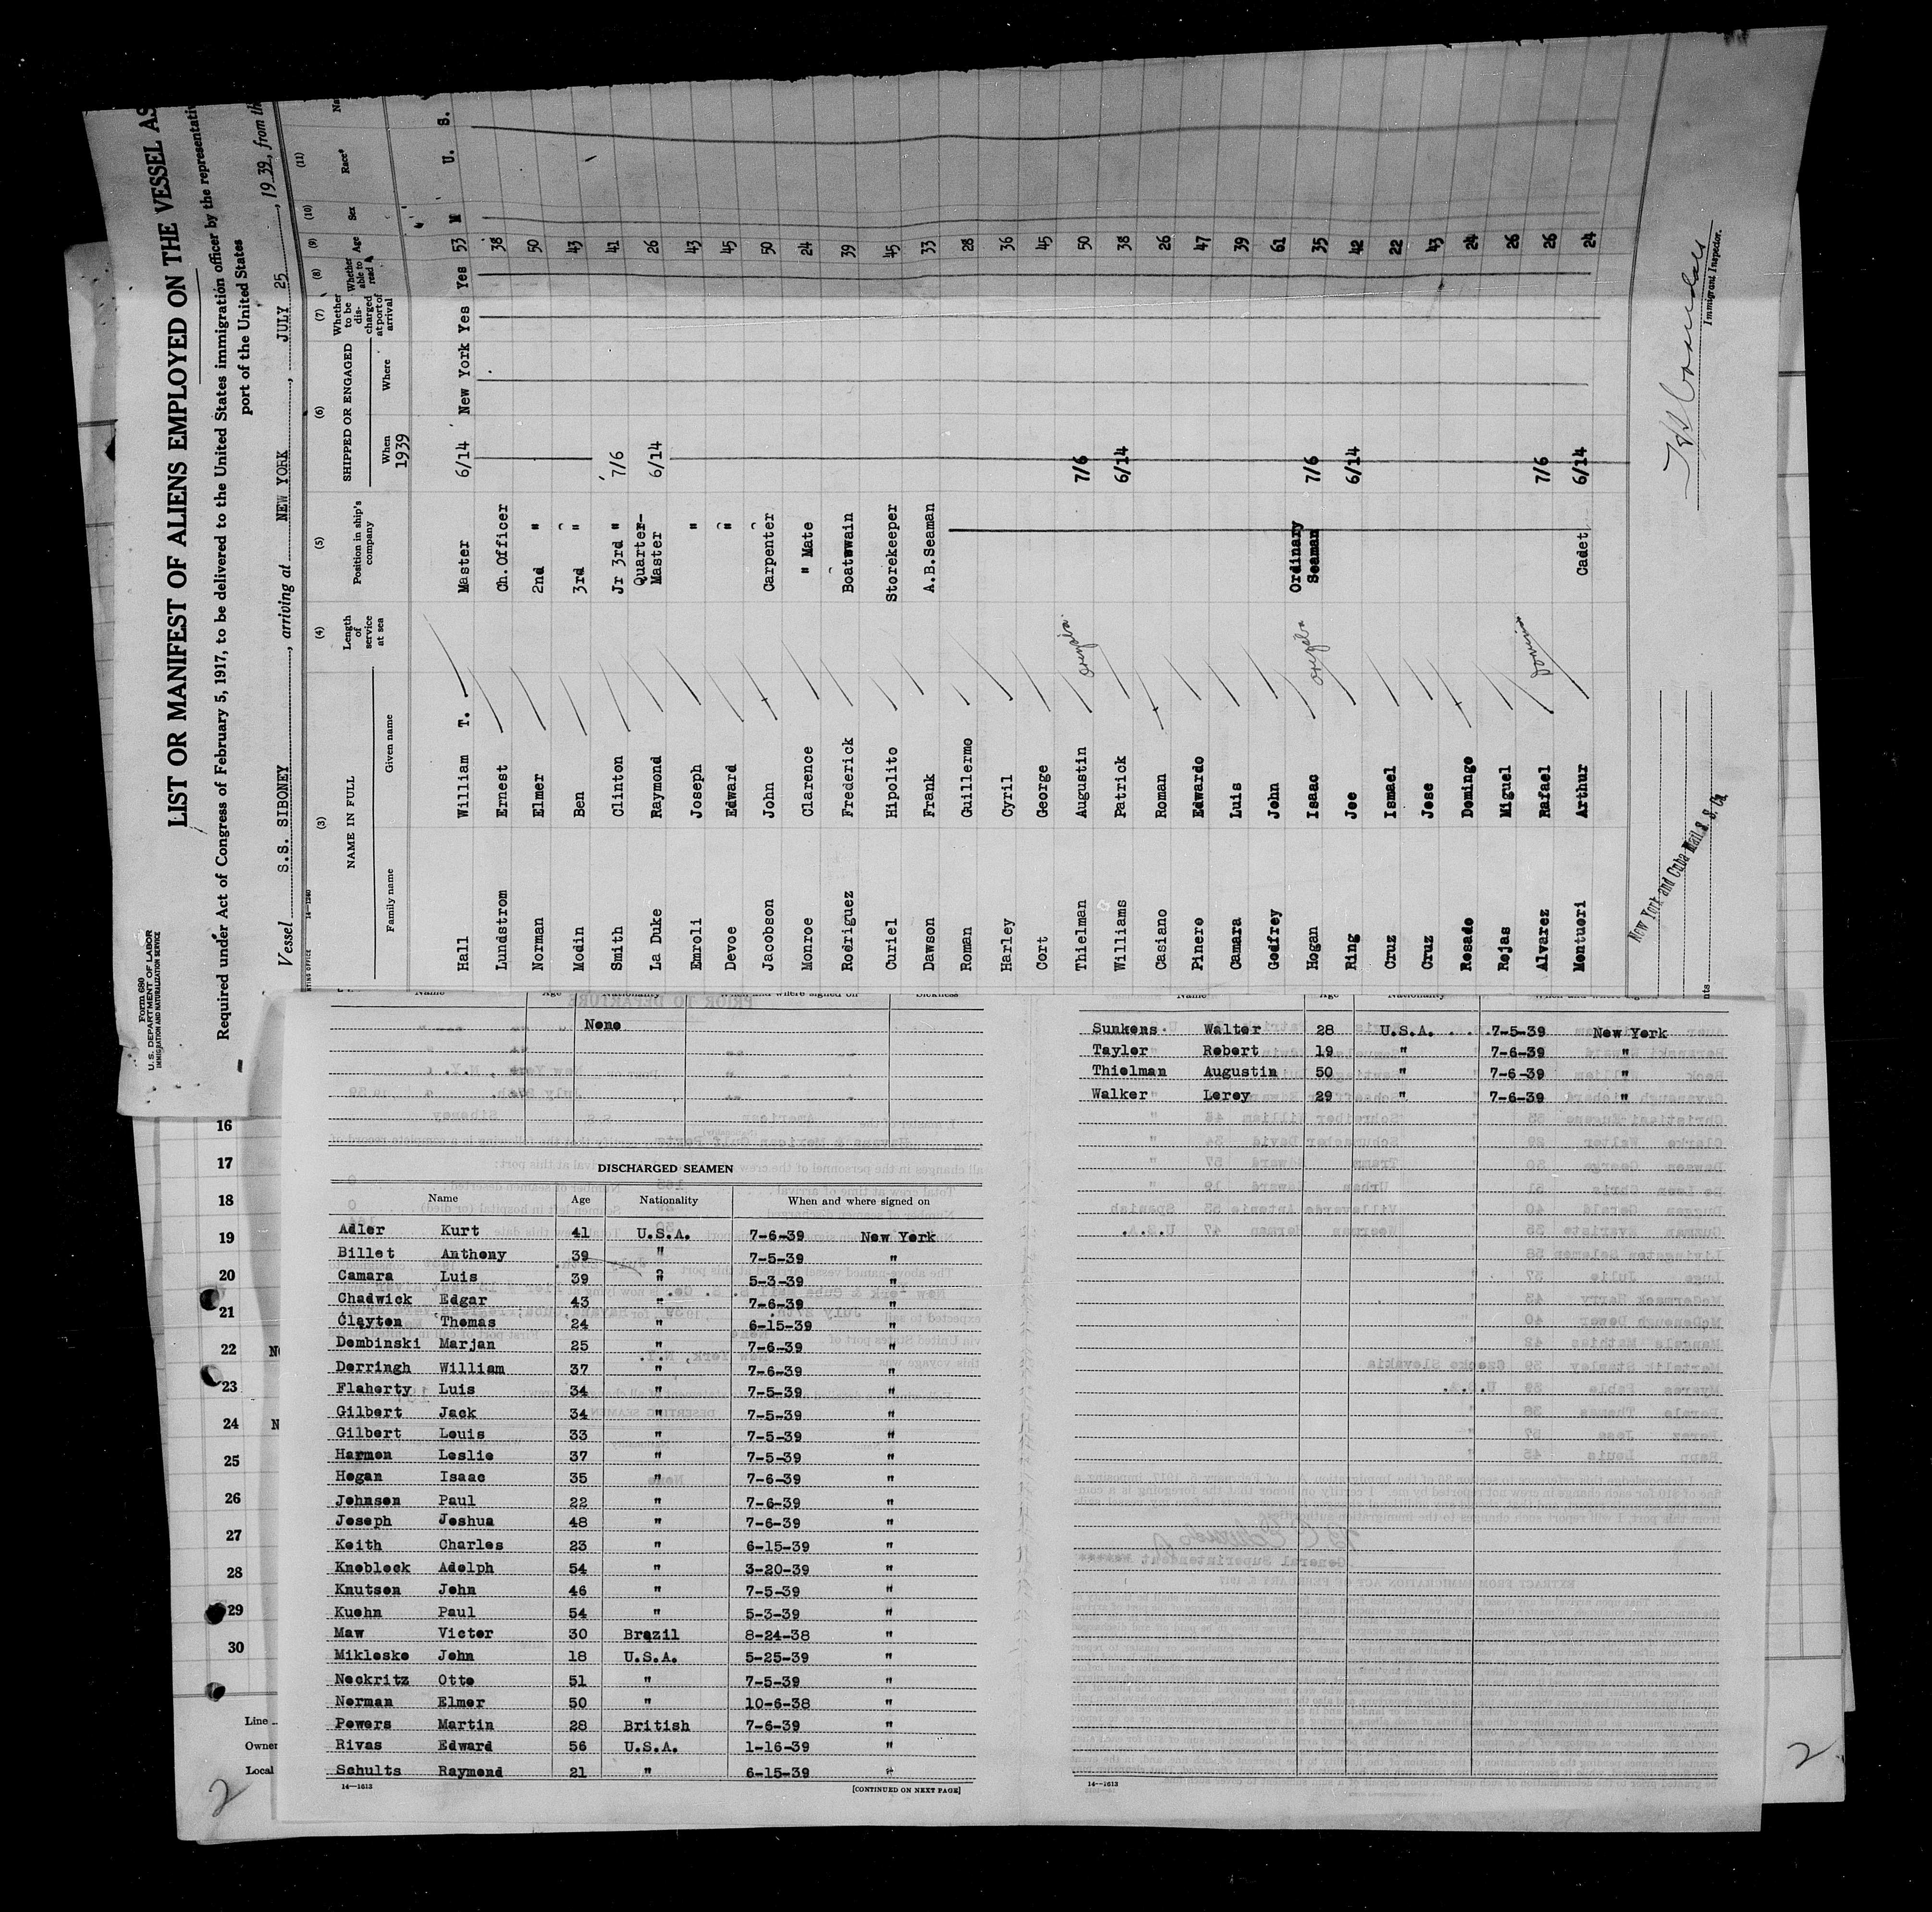 Form 680
U. S. DEPARTMENT OF LABOR
IMMIGRATION AND NATURALIZATION SERVICE
LIST OR MANIFEST OF ALIENS EMPLOYED ON THE VESSEL AS
Required under Act of Congress of February 5, 1917, to be delivered to the United States immigration officer by the representativ
port of the United States
Vessel S.S. SIBONEY, arriving at NEW YORK, JULY 25, 1939, from th
14—1240
(3) (4) (5) (6) (7) (8) (9) (10) (11)
NAME IN FULL Length of service at sea Position in ship's company SHIPPED OR ENGAGED Whether to be discharged at port of arrival Whether able to read Age Sex Race*
Family name Given name When Where
1939
Hall William T. Master 6/14 New York Yes Yes 53 M U. S.
Lundstrom Ernest Ch. Officer 38
Norman Elmer 2nd " 50
Modin Ben 3rd " 43
Smith Clinton Jr 3rd " 7/6 41
La Duke Raymond Quarter-Master 6/14 26
Emroli Joseph " 43
Devoe Edward " 45
Jacobson John Carpenter 50
Monroe Clarence " Mate 24
Rodriguez Frederick Boatswain 39
Curiel Hipolito Storekeeper 45
Dawson Frank A.B.Seaman 33
Roman Guillermo 28
Harley Cyril 36
Cort George 45
Thielman Augustin Orizaba 7/6 50
Williams Patrick 6/14 38
Casiano Roman 26
Pinero Edwardo 47
Camara Luis 39
Godfrey John 61
Hogan Isaac Orizaba Ordinary Seaman 7/6 35
Ring Joe 6/14 42
Cruz Ismael 22
Cruz Jose 43
Rosado Domingo 24
Rojas Miguel 26
Alvarez Rafael 7/6 26
Montuori Arthur Cadet 6/14 24
New York and Cuba Mail S. S. Co.
Immigrant Inspector.
16
17
18
19
20
21
22
23
24
25
26
27
28
29
30
Line
Owner
Local
2
2
Name Age Nationality When and where signed on Sickness
None
DISCHARGED SEAMEN
Name Age Nationality When and where signed on
Adler Kurt 41 U.S.A. 7-6-39 New York
Billet Anthony 39 " 7-5-39 "
Camara Luis 39 " 5-3-39 "
Chadwick Edgar 43 " 7-6-39 "
Clayton Thomas 24 " 6-15-39 "
Dembinski Marjan 25 " 7-6-39 "
Derringh William 37 " 7-6-39 "
Flaherty Luis 34 " 7-5-39 "
Gilbert Jack 34 " 7-5-39 "
Gilbert Louis 33 " 7-5-39 "
Harmon Leslie 37 " 7-5-39 "
Hogan Isaac 35 " 7-6-39 "
Johnson Paul 22 " 7-6-39 "
Joseph Joshua 48 " 7-6-39 "
Keith Charles 23 " 6-15-39 "
Knoblock Adolph 54 " 3-20-39 "
Knutson John 46 " 7-5-39 "
Kuehn Paul 54 " 5-3-39 "
Maw Victor 30 Brazil 8-24-38 "
Mikloske John 18 U.S.A. 5-25-39 "
Nockritz Otto 51 " 7-5-39 "
Norman Elmer 50 " 10-6-38 "
Powers Martin 28 British 7-6-39 "
Rivas Edward 56 U.S.A. 1-16-39 "
Schults Raymond 21 " 6-15-39 "
14—1613 [CONTINUED ON NEXT PAGE]
Name Age Nationality
Sunkens Walter 28 U.S.A. 7-5-39 New York
Tayler Robert 19 " 7-6-39 "
Thielman Augustin 50 " 7-6-39 "
Walker Leroy 29 " 7-6-39 "
14—1613